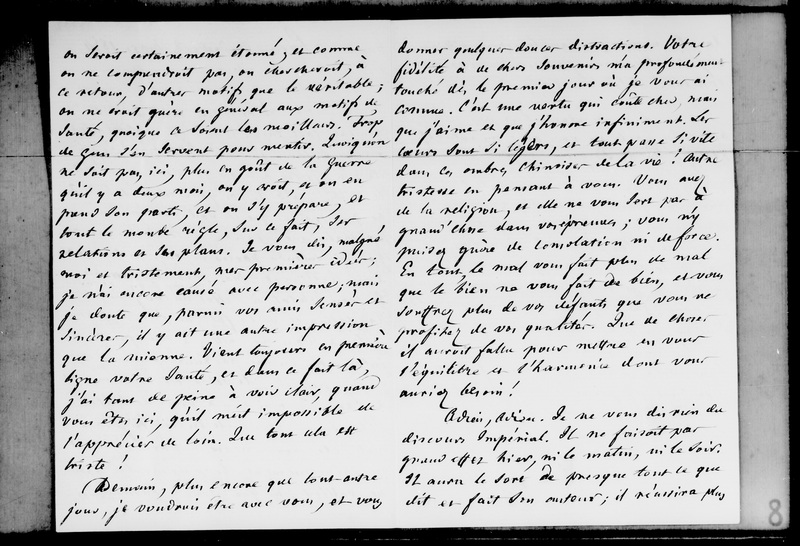 on seroit certainement étonné, et comme
on ne comprendroit pas, on chercheroit, à
ce retour, d'autres motifs que le véritable ;
on ne croit guère en général aux motifs de
santé, quoique ce soient les meilleurs. Trop
de gens s'en servent pour mentir. Quoiqu'on
ne soit pas, ici, plus en goût de la guerre
qu'il y a deux mois, on y croit, et on en
prend son parti, et on s'y prépare, et
tout le monde règle, sur ce fait, ses
relations et ses plans. Je vous dis, malgré
moi et tristement, mes premières idées ;
je n'ai encore causé avec personne ; mais
je doute que, parmi vos amis sensés et
sincères, il y ait une autre impression
que la mienne. Vient toujours en première
ligne votre santé, et dans ce fait là,
j'ai tant de peine à voir clair, quand
vous êtes ici, qu'il m'est impossible de
l'apprécier de loin. Que tout cela est
triste !
Demain, plus encore que tout autre
jour, je voudrois être avec vous, et vous
donner quelques douces distractions. Votre
fidélité à de chers souvenirs m'a profondément
touché dès le premier jour où je vous ai
connue. C'est une vertu qui coûte cher, mais
que j'aime et que j'honore infiniment. Les
cœurs sont si légers, et tout passe si vite
dans ces ombres chinoises de la vie ! Autre
tristesse en pensant à vous. Vous avez
de la religion, et elle ne vous sert pas à
grand'chose dans vos épreuves ; vous n'y
puisez guère de consolation ni de force.
En tout, le mal vous fait plus de mal
que le bien ne vous fait de bien, et vous
souffrez plus de vos défauts que vous ne
profitez de vos qualités. Que de choses
il auroit fallu pour mettre en vous
l'équilibre et l'harmonie dont vous
auriez besoin !
Adieu, Adieu. Je ne vous dis rien du
discours Impérial. Il ne faisoit pas
grand effet hier, ni le matin, ni le soir.
Il aura le sort de presque tout ce que
dit et fait son auteur ; il réussira plus
8